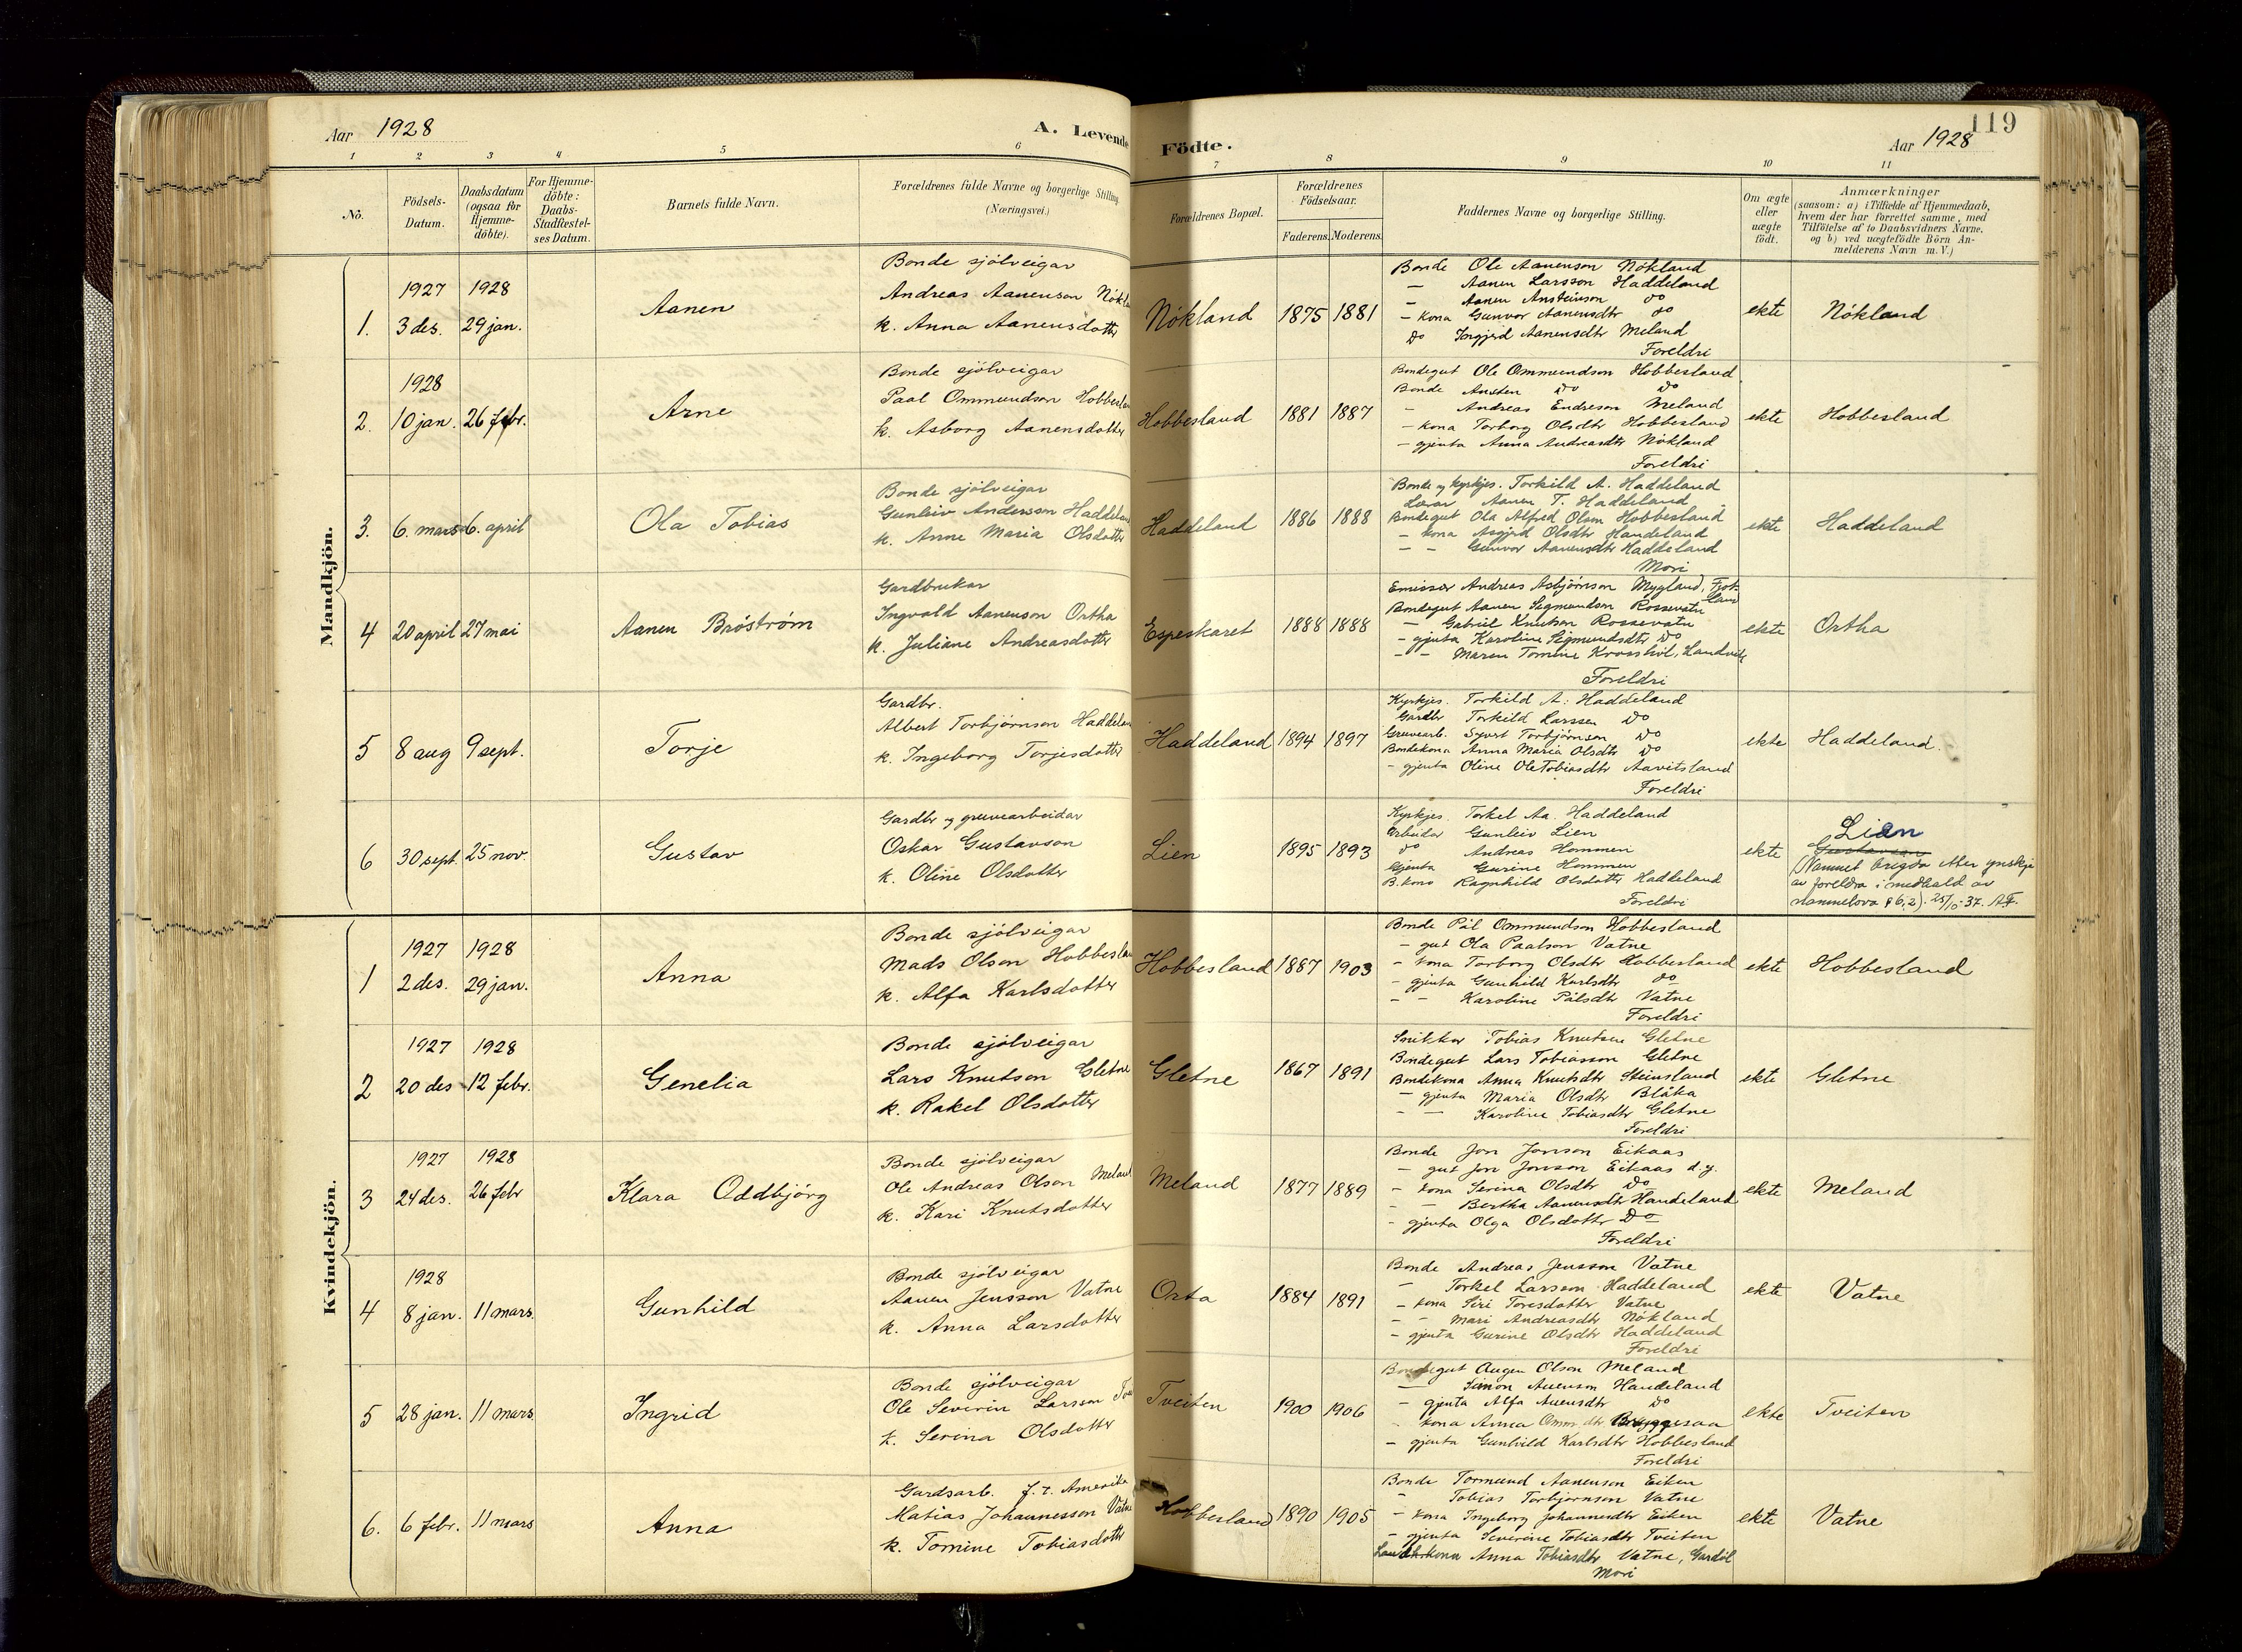 Aar 1928
A. Levende Födte.
Aar 1928
119
1 2 3 4 5 6 7 8 9 10 11
No.
Födsels-Datum.
Daabsdatum (ogsaa for Hjemme-döbte).
For Hjemme-döbte: Daabs-Stadfæstel-ses Datum.
Barnets fulde Navn.
Forældrenes fulde Navne og borgerlige Stilling (Næringsvei.)
Forældrenes Bopæl.
Forældrenes Födselsaar.
Faderens. Moderens.
Faddernes Navne og borgerlige Stilling.
Om ægte eller uægte födt.
Anmærkninger
(saasom: a) i Tilfælde af Hjemmedaab,
hvem der har forrettet samme, med
Tilföielse af to Daabsvidners Navne,
og b) ved uægtefödte Börn An-
melderens Navn m. V.)
Mandkjön.
1. 1927 3 des. 1928 29 jan.
Aanen
Bonde sjölveigar
Andreas Aanenson Nökla
k. Anna Aanensdotter
Nökland 1875 1881
Bonde Ole Aanenson Nökland
— Aanen Larsson Haddeland
— Aanen Ansteinson do
- kona Gunvor Aanensdtr do
do Ingjerd Aanensdtr Meland
Foreldri
ekte Nökland
2. 1928 10 jan. 26 febr.
Arne
Bonde sjölveigar
Paal Ommundson Hobbesla
k. Asborg Aanensdotter
Hobbesland 1881 1887
Bondegut Ole Ommundson Hobbesland
Bonde Ansten do do
- Andreas Endreson Meland
- kona Torborg Olsdtr Hobbesland
- gjenta Anna Andreasdtr Nökland
Foreldri
ekte Hobbesland
3. 6. mars 6. april
Ola Tobias
Bonde sjölveigar
Gunleiv Andersson Haddelan
k. Anne Maria Olsdotter
Haddeland 1886 1888
Bonde og kyrkjes. Torkild A. Haddeland
Lærar Aanen T. Haddeland
Bondegut Ola Alfred Olson Hobbesland
- kona Asgjerd Olsdtr Handeland
- - Gunvor Aanensdtr Haddeland
Mori
ekte Haddeland
4 20 april 27 mai
Aanen Bröström
Gardbrukar
Ingvald Aanenson Ortha
k. Juliane Andreasdotter
Espeskaret 1888 1888
Emissær Andreas Asbjörnson Mygland,
Bondegut Aanen Sigmundson Rossevatn
— Gabriel Knutson Rossevatn
- gjenta Karoline Sigmundsdtr do
- - Maren Tomine
Foreldri
ekte Ortha
5 8 aug 9 sept.
Torje
Gardbr.
Albert Torbjörnson Haddelan
k. Ingeborg Torjesdotter
Haddeland 1894 1897
Kyrkjes. Torkild A. Haddeland
Gardbr Torkild Larssen do
Gruvearb. Syvert Torbjörnson do
Bondekona Anna Maria Olsdtr do
- gjenta Oline OleTobiasdtr Aavitsland
Foreldri
ekte Haddeland.
6 30 sept. 25 nov.
Gustav
Gardbr og gruvearbeidar
Oskar Gustavson
k. Oline Olsdotter
Lien 1895 1893
Kyrkjes. Torkel Aa. Haddeland
Arbeidar Gunleiv Lien
do Andreas Hommen
Gjenta Gurine Hommen
B. kona Ragnhild Olsdotter Haddeland
Foreldri
ekte Lien
Gustavson
(Namnet brigda etter ynskje
av foreldra i medhald av
namnelova § 6,2). 25/10-37. AF.
Kvindekjön.
1 1927 2 des. 1928 29 jan.
Anna
Bonde sjölveigar
Mads Olson Hobbesla
k. Alfa Karlsdotter
Hobbesland 1887 1903
Bonde Pål Ommundson Hobbesland
- gut Ola Paalson Vatne
- kona Torborg Olsdtr Hobbesland
- gjenta Gunhild Karlsdtr do
- - Karoline Pålsdtr Vatne
Foreldri
ekte Hobbesland
2 1927 20 des 1928 12 febr.
Genelia
Bonde sjölveigar
Lars Knutson Gletne
k. Rakel Olsdotter
Gletne 1867 1891
Snikkar Tobias Knutsen Gletne
Bondegut Lars Tobiasson Gletne
Bondekona Anna Knutsdtr Steinsland
- gjenta Maria Olsdtr Blåka
- — Karoline Tobiasdtr Gletne
Foreldri
ekte Gletne
3 1927 24 des. 1928 26 febr
Klara Oddbjörg
Bonde sjölveigar
Ole Andreas Olson Melan
k. Kari Knutsdotter
Meland 1877 1889
Bonde Jon Jonson Eikaas
- gut Jon Jonson Eikaas d.y.
- kona Serina Olsdtr do
- - Bertha Aanensdtr Handeland
- gjenta Olga Olsdotter do
Foreldri
ekte Meland
4 1928 8 jan. 11 mars.
Gunhild
Bonde sjölveigar
Aanen Jensson Vatne
k. Anna Larsdotter
Orta 1884 1891
Bonde Andreas Jensson Vatne
— Torkel Larsson Haddeland
- kona Siri Toresdotter Vatne
- - Mari Andreasdtr Nökland
- gjenta Gurine Olsdtr Haddeland
Foreldri
ekte Vatne
5 28 jan. 11 mars.
Ingrid
Bonde sjölveigar
Ole Severin Larsson Tve
k. Serina Olsdotter
Tveiten 1900 1906
Bondegut Augen Olson Meland
— Simon Auenson Handeland
- gjenta Alfa Auensdtr do
- kona Anna Omm.dtr Bryggesaa
- gjenta Gunhild Karlsdtr Hobbesland
Foreldri
ekte Tveiten
6. 6 febr. 11 mars
Anna
Gardsarb. f.t. Amerika
Matias Johannesson Vatne
k. Tomine Tobiasdotter
Hobbesland 1890 1905
Bonde Tormund Aanenson Eiken
- Tobias Torbjornson Vatne
- kona Ingeborg Johannesdtr Eiken
- gjenta Severine Tobiasdtr Tveiten
Anna Tobiasdtr Vatne,
Mori
ekte Vatne